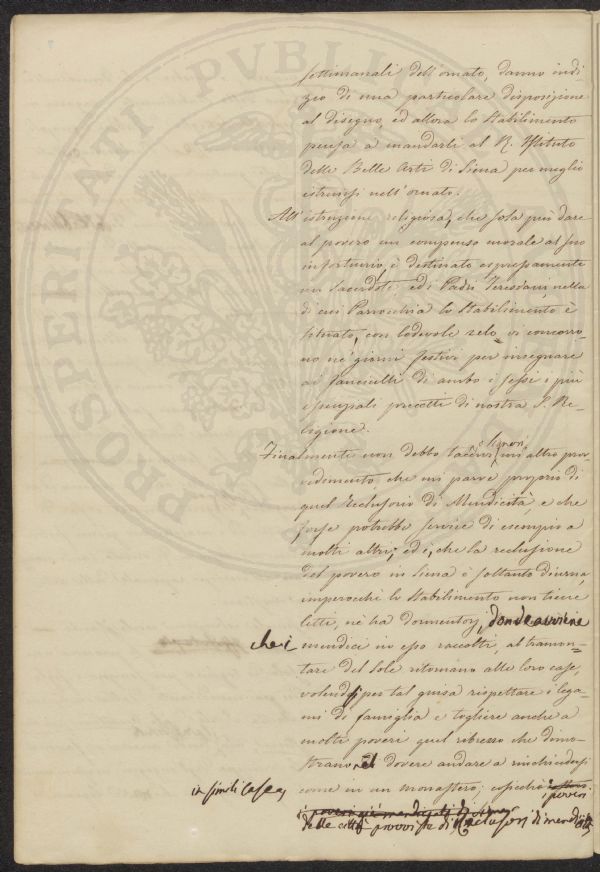 settimanali dell'ornato, danno indi-
zio di una particolare disposizione
al disegno, ed allora lo Stabilimento
pensa a mandarli al R. Istituto
delle Belle Arti di Siena per meglio
istruirsi nell'ornato.
All'istruzione religiosa, che sola può dare
al povero un compenso morale al suo
infortunio, è destinato espressamente
un Sacerdote; ed i Padri Teresiani, nella
di cui Parrocchia lo Stabilimento è
situato, con lodevole zelo vi concorro-
no ne' giorni festivi per insegnare
ai fanciulli di ambo i sessi i più
essenziali precetti di nostra S. Re-
ligione.
Finalmente non debbo tacervi o Signori un'altro prov-
vedimento, che mi parve proprio di
quel Reclusorio di Mendicità, e che
forse potrebbe servire di esempio a
molti altri; ed è, che la reclusione
del povero in Siena è soltanto diurna,
imperocchè lo Stabilimento non tiene
letti, nè ha dormentorj, donde avviene
che i mendici in esso raccolti, al tramon-
tare del sole ritornano alle loro case,
volendosi per tal guisa rispettare i lega-
mi di famiglia e togliere anche a
molti poveri quel ribrezzo che dimo-
strano al dovere andare a rinchiudersi
come in un monastero; cosicchè
in simili case, i poveri
delle città provviste di Reclusorj di mendicità
PROSPERITATI PVBLI